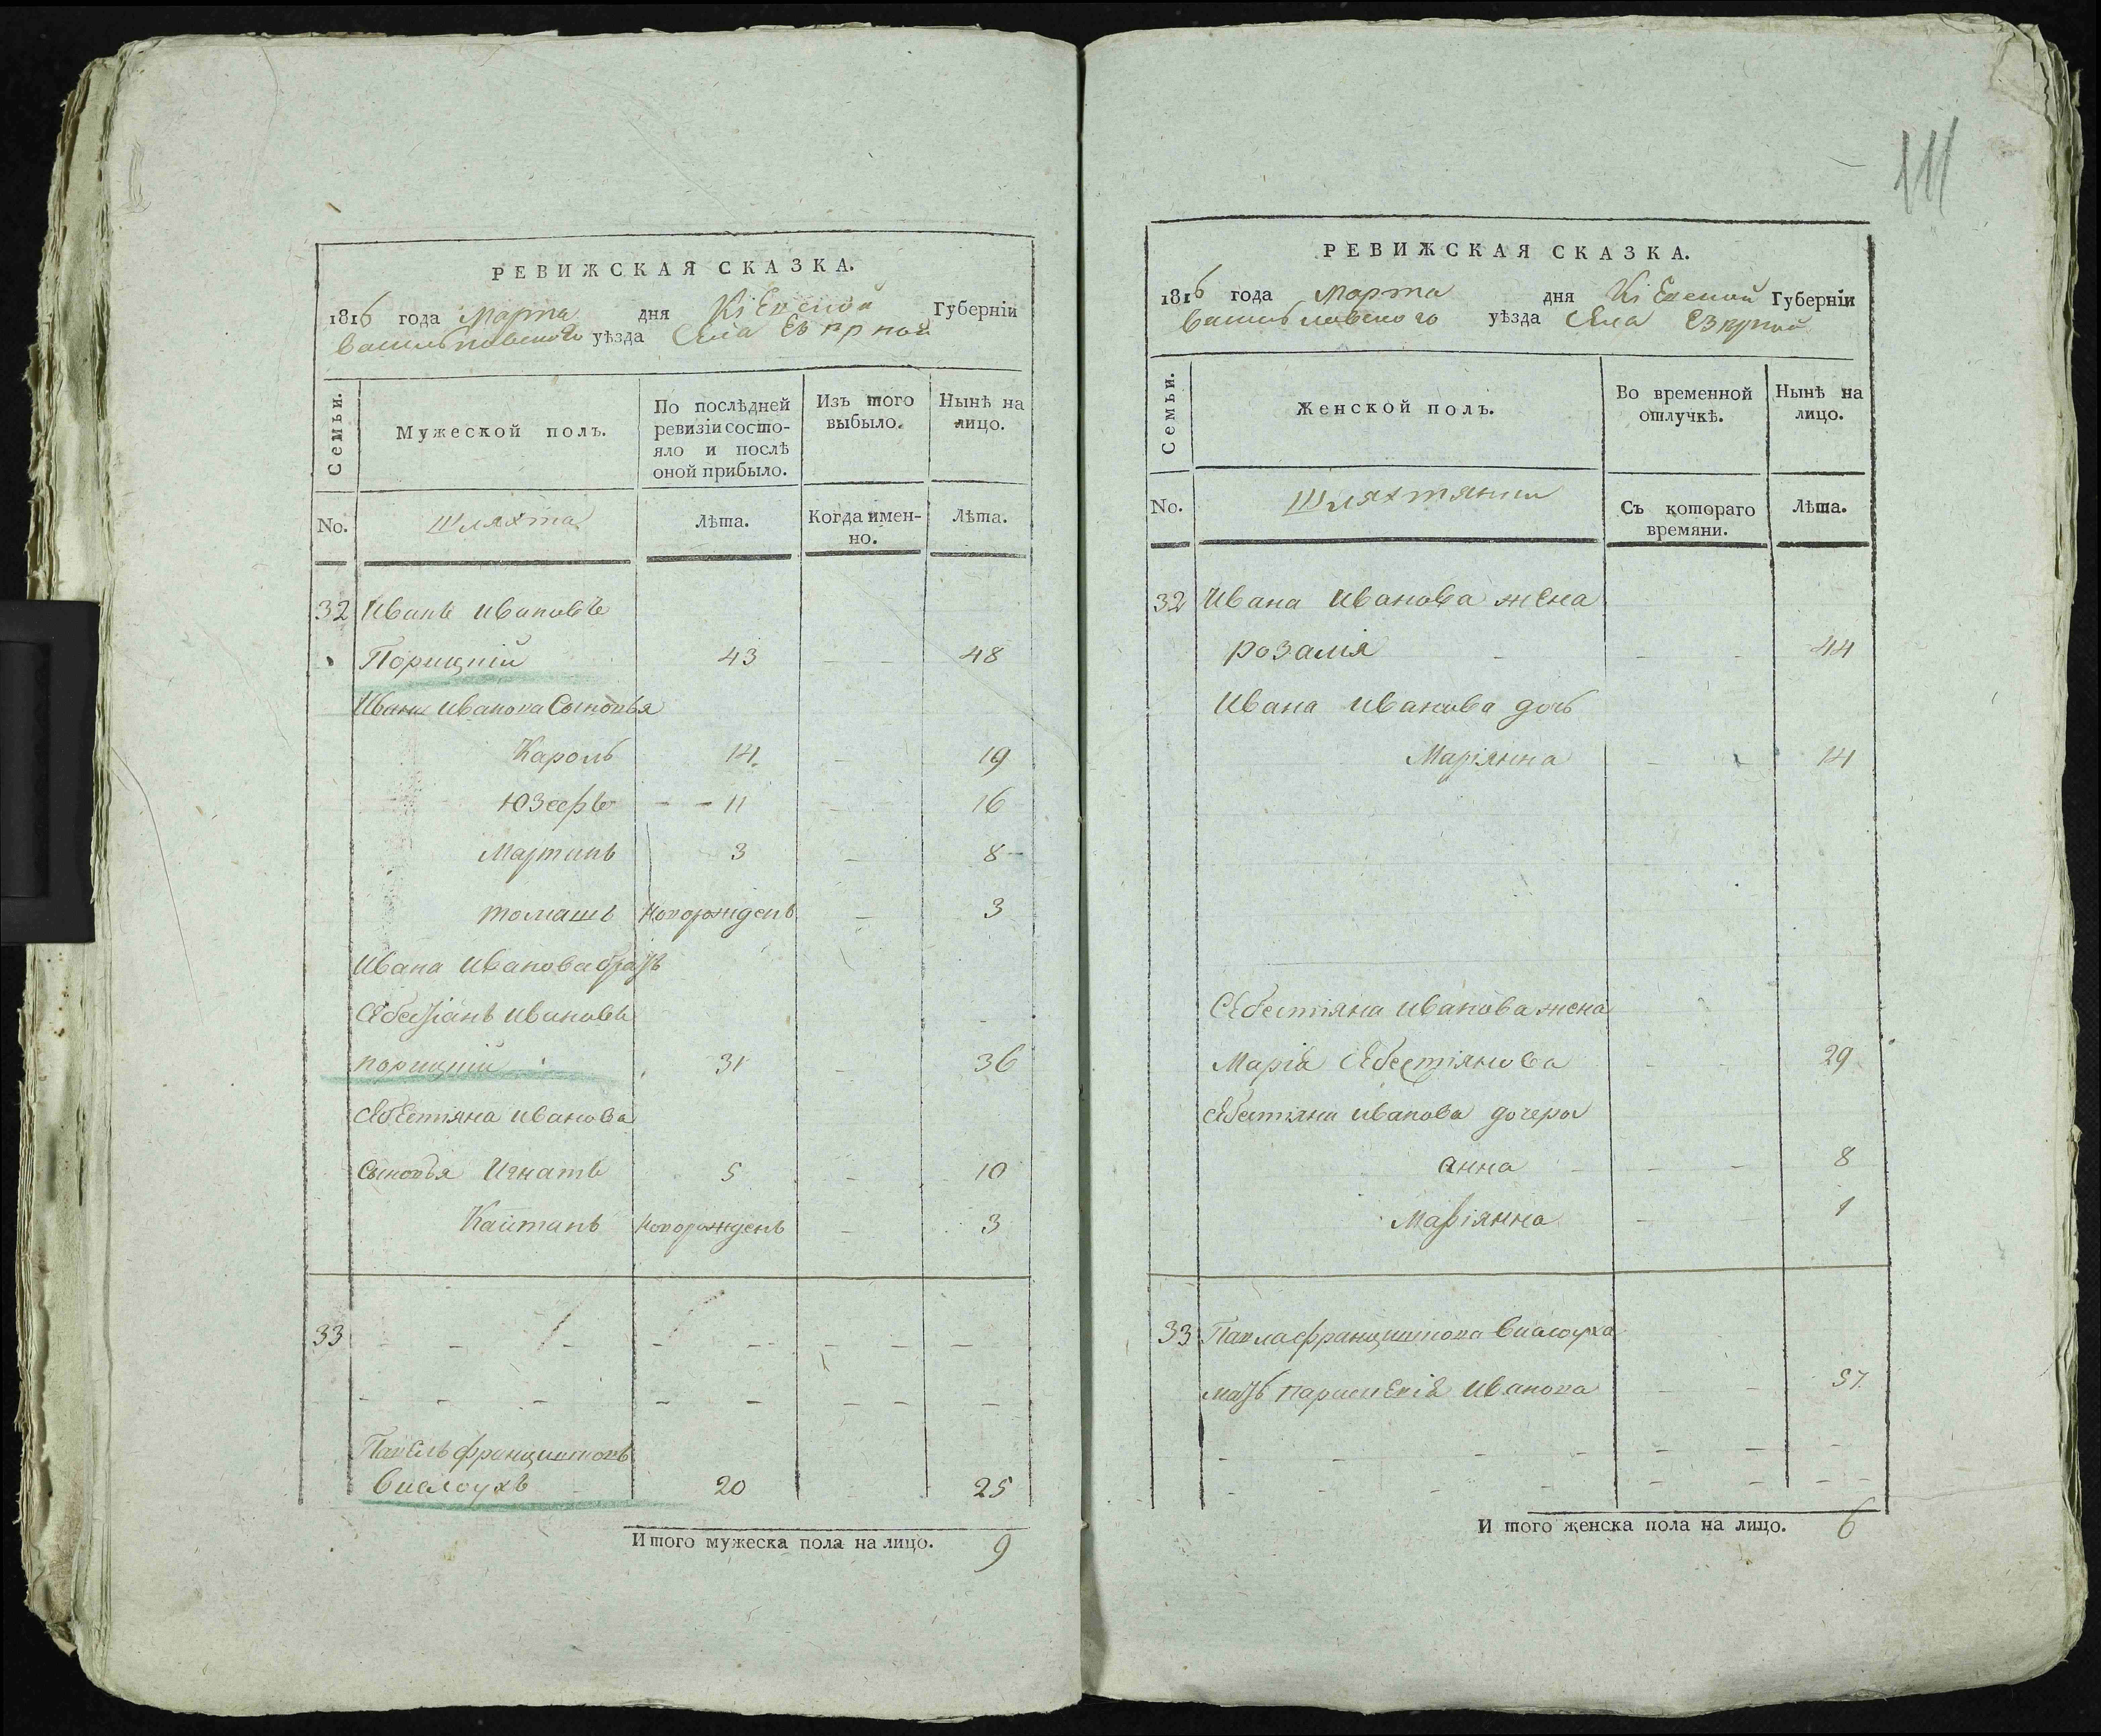 РЕВИЖСКАЯ СКАЗКА.
1816 года Марта дня Кіевской Губерніи
Васильковскаго уѣзда Села
Семьи.
Мужеской полъ.
По послѣдней ревизіи состо-
яло и послѣ оной прибыло.
Изъ того выбыло.
Нынѣ на лицо.
No.
Шляхта
Лѣта.
Когда имен-
но.
Лѣта.
32 Иванъ Ивановъ
Порицкій 43 48
Ивана Иванова Сыновья
Кароль 14. 19
Юзефъ 11 16
Мартинъ 3 8
томашъ новорожденъ 3
Ивана Иванова братъ
Себестіанъ Ивановъ
порицкій 31 36
Себестіяна Иванова
Сыновья Игнатъ 5 10
Каитанъ новорожденъ 3
33
Павелъ францишковъ
Вислоухъ 20 25
Итого мужеска пола на лицо. 9
111
РЕВИЖСКАЯ СКАЗКА.
1816 года Марта дня Кіевской Губерніи
Васильковскаго уѣзда Села
Семьи.
Женской полъ.
Во временной отлучкѣ.
Нынѣ на лицо.
No.
Шляхтянки
Съ котораго времяни.
Лѣта.
32 Ивана Иванова жена
розалія 44
Ивана Иванова дочь
Маріянна 14
Себестіяна Иванова жена
Марія Себестіянова 29
Себестіяна Иванова дочери
анна 8
Маріянна 1
33 Павла францишкова Вислоуха
мать параскевія Иванова 57
Итого женска пола на лицо. 6